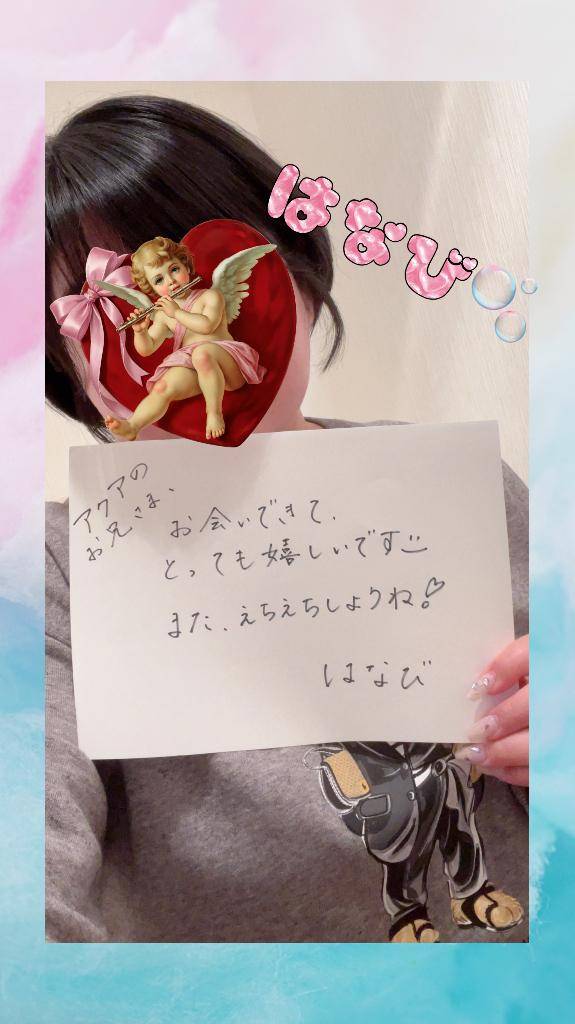 はなび
アクアの
お兄さま、
お会いできて、
とっても嬉しいです
また、えちえちしようね!
はなび